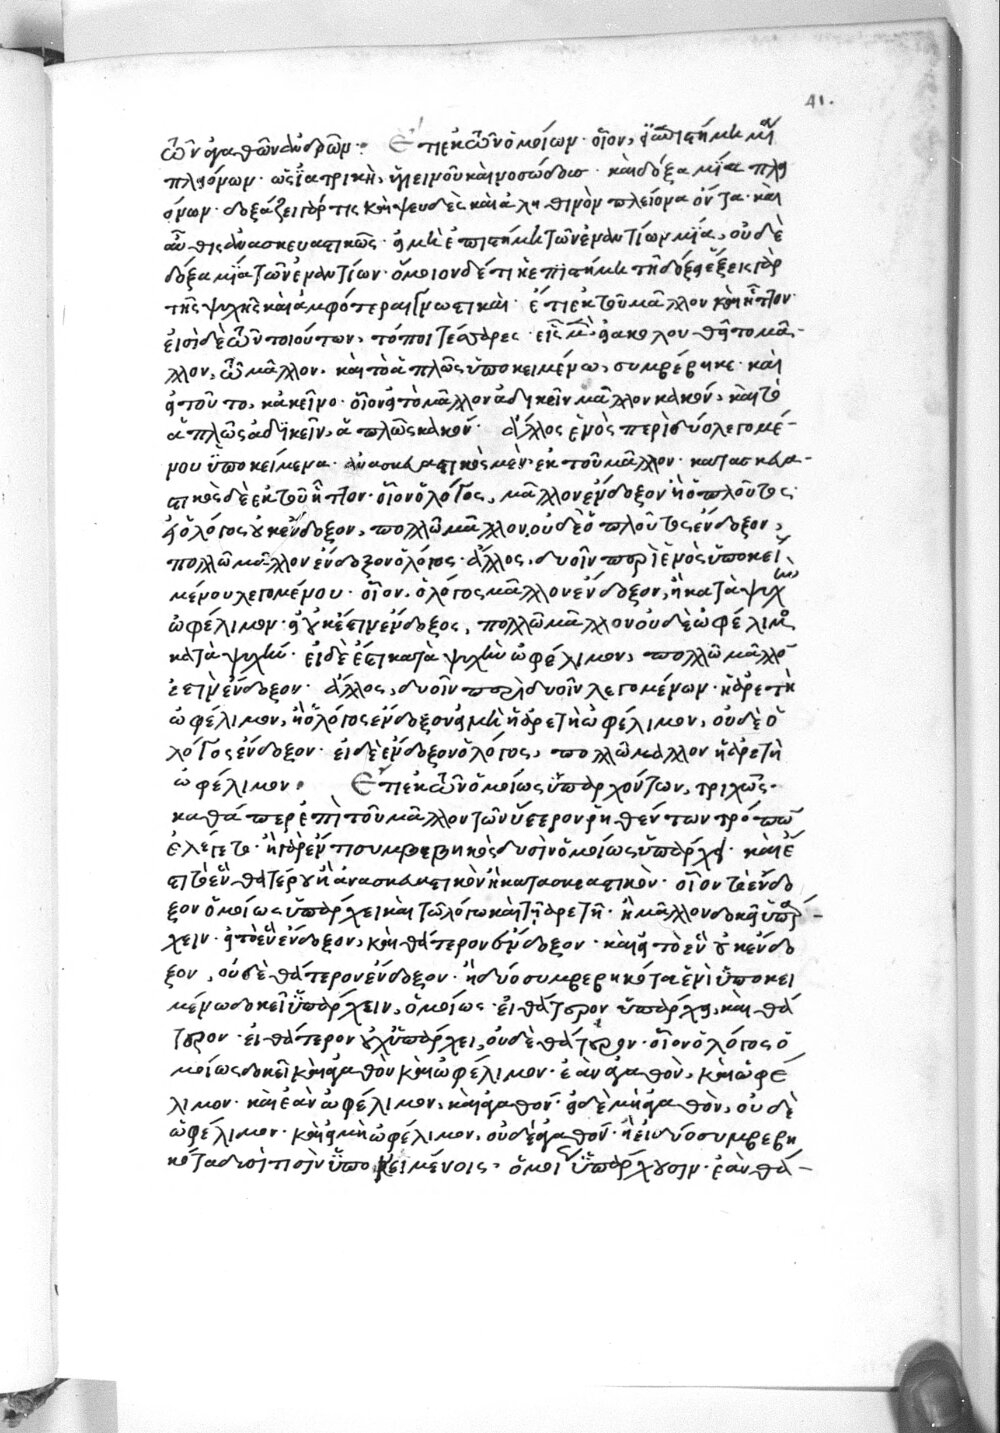 41.
τῶν ἀγαθῶν ἀνδρῶν· Ἔτι ἐκ τῶν ὁμοίων· οἷον, εἰ ἐπιστήμη μία
πλειόνων· ὡς ἰατρικὴ, ὑγιεινοῦ καὶ νοσώδους· καὶ δόξα μία πλει
όνων· δοξάζει γάρ τις καὶ ψευδὲς καὶ ἀληθινὸν πλείονα ὄντα· καὶ
αὖθις ἀνασκευαστικῶς· εἰ μὴ ἐπιστήμη τῶν ἐναντίων μία, οὐδὲ
δόξα μία τῶν ἐναντίων· ὅμοιον δέ τι ἡ ἐπιστήμη τῇ δόξῃ ἕξεις γὰρ
τῆς ψυχῆς καὶ ἀμφότεραι γνωστικαὶ· ἔτι ἐκ τοῦ μᾶλλον καὶ ἧττον·
εἰσὶ δὲ τῶν τοιούτων, τόποι τέσσαρες· εἷς μὲν, εἰ ἀκολουθεῖ τὸ μᾶ-
λλον, τῷ μᾶλλον, καὶ τὸ ἁπλῶς ὑποκειμένῳ, συμβέβηκε· καὶ
εἰ τοῦτο, κἀκεῖνο· οἷον εἰ τὸ μᾶλλον ἀδικεῖν μᾶλλον κακόν, καὶ τὸ
ἁπλῶς ἀδικεῖν, ἁπλῶς κακόν· ἄλλος ἑνὸς περὶ δύο λεγομέ-
νου ὑποκείμενα· ἀνασκευαστικὸς μὲν ἐκ τοῦ μᾶλλον· κατασκευα-
στικὸς δὲ ἐκ τοῦ ἧττον· οἷον ὁ λόγος, μᾶλλον ἔνδοξον ἢ ὁ πλοῦτος·
εἰ ὁ λόγος οὐκ ἔνδοξον, πολλῷ μᾶλλον οὐδὲ ὁ πλοῦτος ἔνδοξον,
πολλῷ μᾶλλον ἔνδοξον ὁ λόγος· ἄλλος, δυοῖν περὶ ἑνὸς ὑποκει
μένου λεγομένου· οἷον, ὁ λόγος μᾶλλον ἔνδοξον, ἢ κατὰ ψυχὴν
ὠφέλιμον· εἰ οὐκ ἔστιν ἔνδοξος, πολλῷ μᾶλλον οὐδὲ ὠφέλιμος
κατὰ ψυχήν· εἰ δὲ ἐστι κατὰ ψυχὴν ὠφέλιμον, πολλῷ μᾶλλον
ἐστὶν ἔνδοξον· ἄλλος, δυοῖν περὶ δυοῖν λεγομένων· ἡ ἀρετὴ
ὠφέλιμον, ἢ ὁ λόγος ἔνδοξον εἰ μὴ ἡ ἀρετὴ ὠφέλιμον, οὐδὲ ὁ
λόγος ἔνδοξον· εἰ δὲ ἔνδοξον ὁ λόγος, πολλῷ μᾶλλον ἡ ἀρετὴ
ὠφέλιμον· Ἔτι ἐκ τῶν ὁμοίως ὑπαρχόντων, τριχῶς·
καθά περ ἐπὶ τοῦ μᾶλλον τῶν ὕστερον ῥηθέντων τρόπων
ἐλέγετο· ἢ γὰρ ἕν τι συμβεβηκὸς δυσὶν ὁμοίως ὑπάρχει· καὶ ἔ
στι τὸ ἓν θατέρου ἢ ἀνασκευαστικὸν ἢ κατασκευαστικὸν· οἷον τὸ ἔνδο
ξον ὁμοίως ὑπάρχει καὶ τῷ λόγῳ καὶ τῇ ἀρετῇ· ἢ μᾶλλον δοκεῖ ὑπάρ-
χειν· εἰ τὸ ἓν ἔνδοξον, καὶ θάτερον ἔνδοξον· καὶ εἰ τὸ ἓν οὐκ ἔνδο
ξον, οὐδὲ θάτερον ἔνδοξον· ἢ δύο συμβεβηκότα ἑνὶ ὑποκει
μένῳ δοκεῖ ὑπάρχειν, ὁμοίως· εἰ θάτερον ὑπάρχει, καὶ θά
τερον· εἰ θάτερον οὐχ ὑπάρχει, οὐδὲ θάτερον· οἷον ὁ λόγος ὁ
μοίως δοκεῖ καὶ ἀγαθὸν καὶ ὠφέλιμον· ἐὰν ἀγαθὸν, καὶ ὠφέ
λιμον· καὶ ἐὰν ὠφέλιμον, καὶ ἀγαθόν· εἰ δὲ μὴ ἀγαθὸν, οὐδὲ
ὠφέλιμον· καὶ εἰ μὴ ὠφέλιμον, οὐδὲ ἀγαθόν· ἢ εἰ δύο συμβεβη
κότα δυσί τισὶν ὑποκειμένοις, ὁμοίως ὑπάρχουσιν· ἐὰν θά-